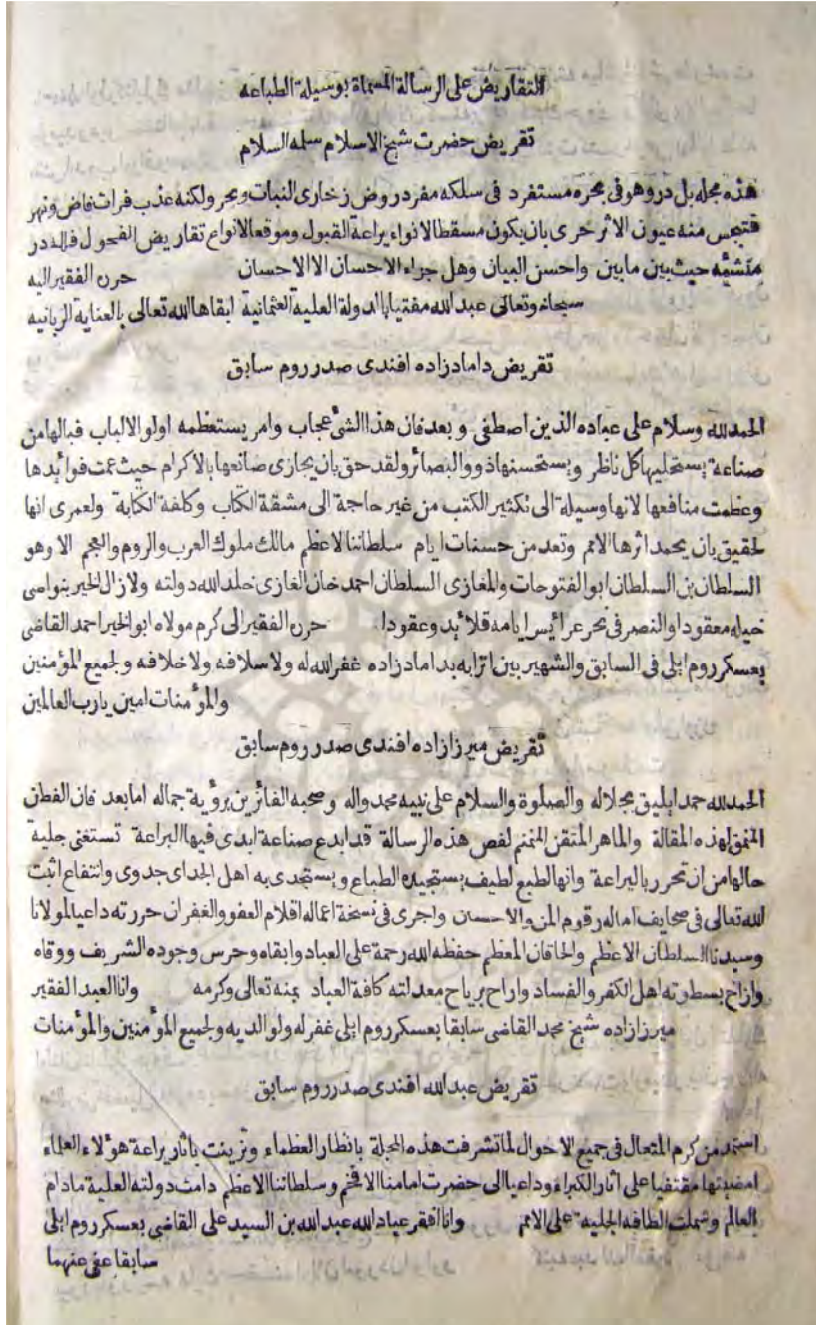 التقاريض على الرسالة المسماة بوسيلة الطباعه
تقريض حضرت شيخ الاسلام سلمه السلام
هذه مجله بل در وهو فى بحره مستفرد فى سلكه مفرد روض زخارى النبات وبحر ولكنه عذب فرات فاض ونهر
فتبجس منه عيون الاثر حرى بان يكون مسقطا لانواء يراعة القبول وموقعا لانواع تقاريض الفحول فلله در
منشيه حيث بين مابين واحسن البيان وهل جزاء الاحسان الا الاحسان حرره الفقير اليه
سبحانه وتعالى عبد الله مفتيا بالدولة العلية العثمانية ابقاها الله تعالى بالعناية الربانيه
تقريض داماد زاده افندى صدر روم سابق
الحمد لله وسلام على عباده الذين اصطفى وبعد فان هذا الشئ عجاب وامر يستعظمه اولو الالباب فيالها من
صناعة يستحليها كل ناظر ويستحسنها ذووالبصائر ولقد حق بان يجازى صانعها بالاكرام حيث عمت فوائدها
وعظمت منافعها لانها وسيلة الى تكثير الكتب من غير حاجة الى مشقة الكتاب وكلفة الكتابة ولعمرى انها
لحقيق بان يحمد اثرها الامم وتعد من حسنات ايام سلطاننا الاعظم مالك ملوك العرب والروم والعجم الا وهو
السلطان بن السلطان ابو الفتوحات والمغازى السلطان احمد خان الغازى خلد الله دولته ولازال الخير بنواصى
خيله معقودا والنصر فى نحر عرائس ايامه قلائد وعقودا حرره الفقير الى كرم مولاه ابو الخير احمد القاضى
بعسكر روم ايلى فى السابق والشهير بين اترابه بداماد زاده غفر الله له ولاسلافه ولاخلافه ولجميع المؤمنين
والمؤمنات امين يارب العالمين
تقريض ميرزا زاده افندى صدر روم سابق
الحمد لله حمدا يليق بجلاله والصلوة والسلام على نبيه محمد واله وصحبه الفائزين برؤية جماله امابعد فان الفطن
المنمق لهذه المقالة والماهر المتقن المنمنم لفص هذه الرسالة قد ابدع صناعة ابدى فيها البراعة تستغنى جلية
حالها من ان تحرر باليراعة وانها لطبع لطيف يستجيده الطباع ويستجدى به اهل الجداى جدوى وانتفاع اثبت
الله تعالى فى صحايف اماله رقوم المن والاحسان واجرى فى نسخة اعماله اقلام العفو والغفران حررته داعيا لمولانا
وسيدنا السلطان الاعظم والخاقان المعظم حفظه الله رحمة على العباد وابقاه وحرس وجوده الشريف ووقاه
وازاح بسطوته اهل الكفر والفساد واراح برياح معدلته كافة العباد بمنه تعالى وكرمه وانا العبد الفقير
ميرزا زاده شيخ محمد القاضى سابقا بعسكر روم ايلى غفر له ولوالديه ولجميع المؤمنين والمؤمنات
تقريض عبد الله افندى صدر روم سابق
استمد من كرم المتعال فى جميع الاحوال لما تشرفت هذه المجلة بانظار العظماء وتزينت باثار يراعة هؤلاء العلماء
امضيتها مقتفيا على اثار الكبراء وداعيا الى حضرت امامنا الافخم وسلطاننا الاعظم دامت دولته العلية مادام
العالم وشملت الطافه الجليه على الامم وانا افقر عباد الله عبد الله بن السيد على القاضى بعسكر روم ايلى
سابقا عفى عنهما